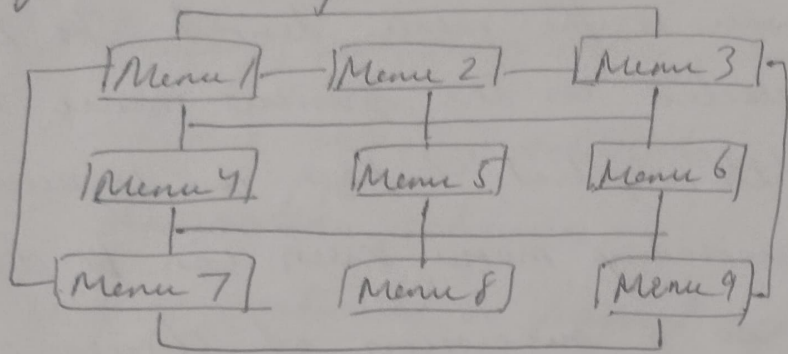 Menu 1 Menu 2 Menu 3
Menu 4 Menu 5 Menu 6
Menu 7 Menu 8 Menu 9